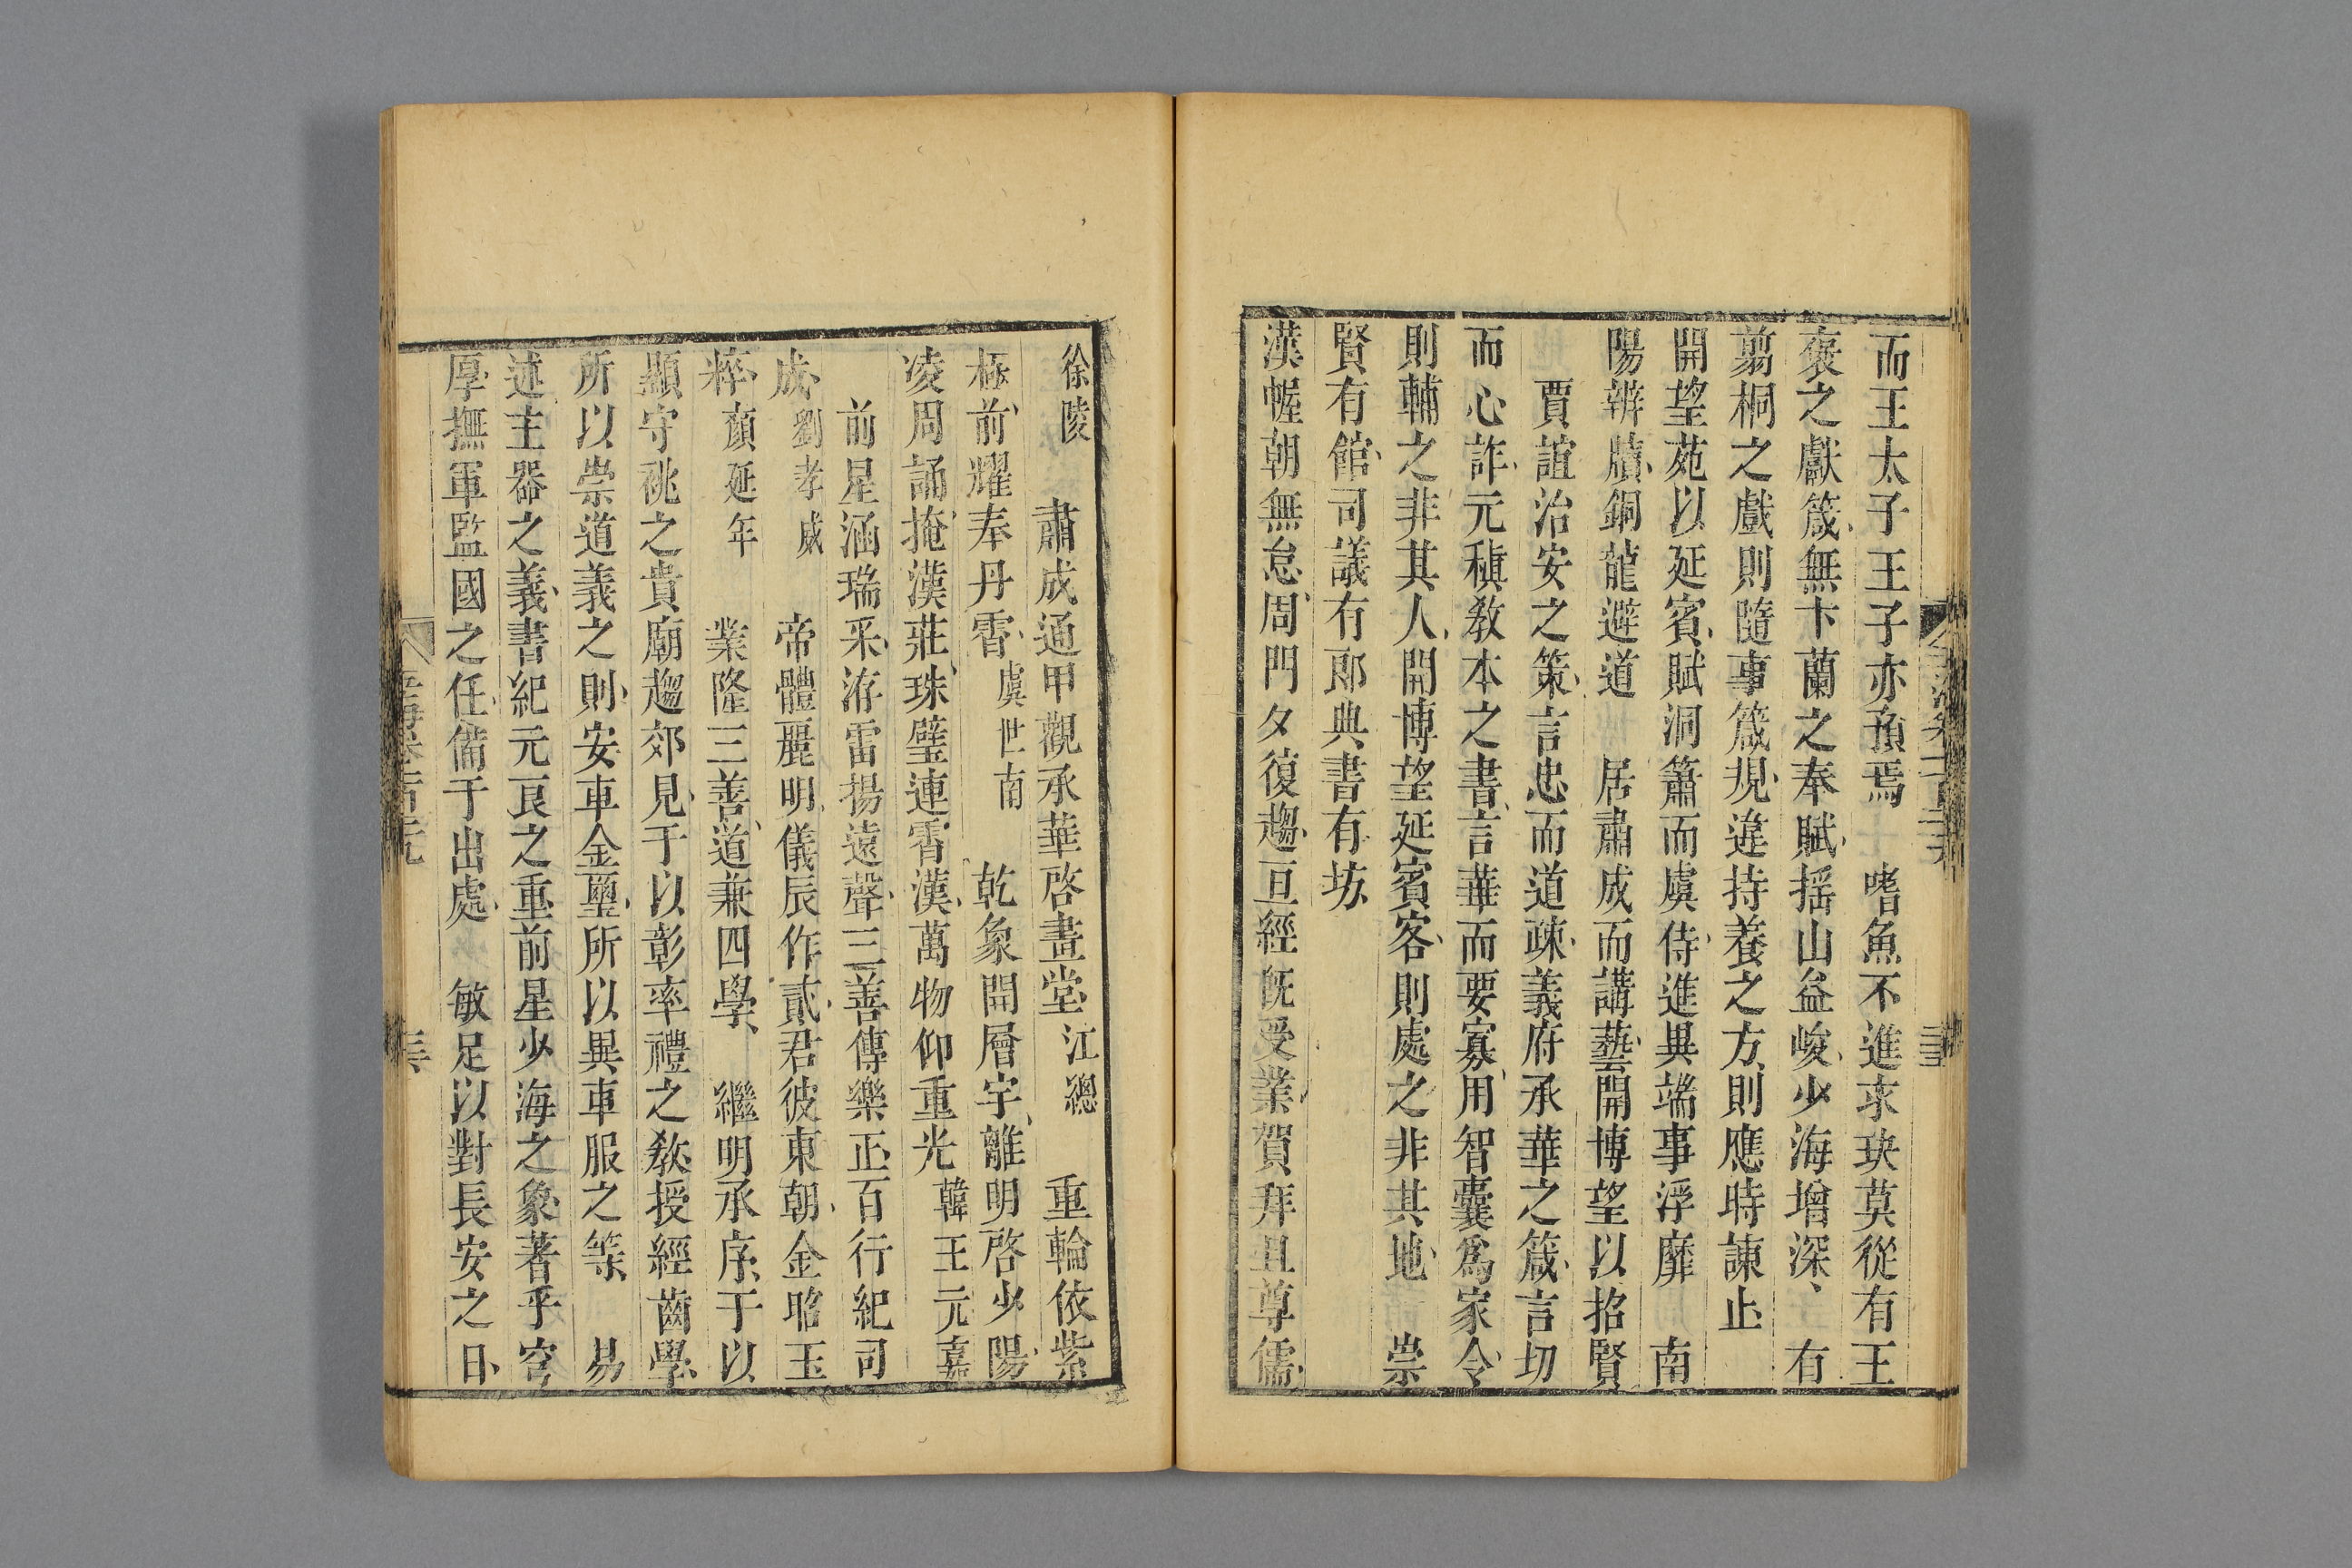 而王太子王子亦預焉　嗜魚不進求玦莫從有王
褒之獻箴無卞蘭之奉賦搖山益峻少海增深、　有
翦桐之戲則隨事箴規違持養之方則應時諫止
開望苑以延賓賦洞簫而虞侍進異端事浮靡　南
陽辨牘銅龍避道　居肅成而講藝開博望以招賢
賈誼治安之策言忠而道疎義府承華之箴言切
而心詐元稹教本之書言華而要寡用智囊爲家令
則輔之非其人開博望延賓客則處之非其地　崇
賢有館司議有郎典書有坊
漢幄朝無怠周門夕復趨亘經旣受業賀拜且尊儒
徐陵　肅成通甲觀承華啓畫堂江總　重輪依紫
極前耀奉丹霄虞世南　乾象開層宇離明啓少陽
凌周誦掩漢莊珠璧連霄漢萬物仰重光韓王元嘉
前星涵瑞釆洊雷揚遠聲三善傳樂正百行紀司
成劉孝威　帝體麗明儀辰作貳君彼東朝金昭玉
粹顏延年　業隆三善道兼四學、　繼明承序于以
顯守祧之貴廟趨郊見于以彰率禮之教授經齒學
所以崇道義之則安車金璽所以異車服之等　易
述主器之義書紀元良之重前星少海之象著乎穹
厚撫軍監國之任備于出處　敏足以對長安之日